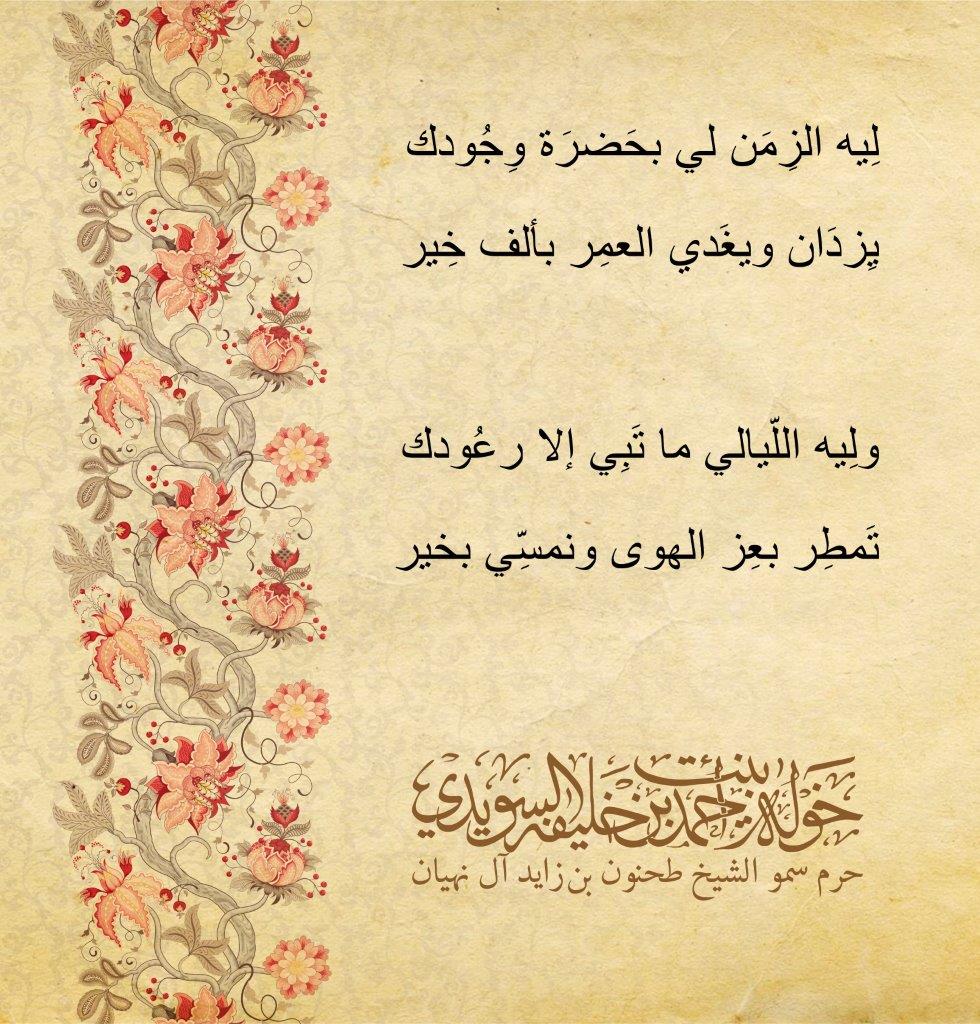 لِيه الزِمَن لي بحَضرَة وِجُودك
يِزدَان ويغَدي العمِر بألف خِير
ولِيه اللّيالي ما تَبِي إلا رعُودك
تَمطِر بعِز الهوى ونمسِّي بخير
خولة بنت أحمد بن خليفة السويدي
حرم سمو الشيخ طحنون بن زايد آل نهيان